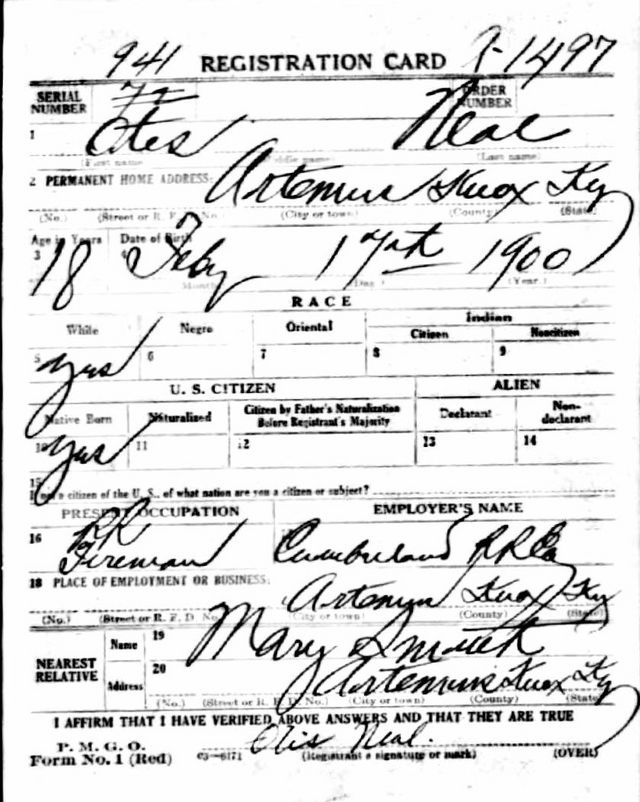 941 REGISTRATION CARD A-1497
SERIAL NUMBER ORDER NUMBER
1 Otis Neal
(First name) (Middle name) (Last name)
2 PERMANENT HOME ADDRESS: Artemus Knox Ky
(No.) (Street or R. F. D. No.) (City or town) (County) (State)
Age in Years Date of Birth
3 18 4 Feby 17th 1900
(Month.) (Day.) (Year.)
RACE
White Negro Oriental Indian
Citizen Noncitizen
5 yes 6 7 8 9
U. S. CITIZEN ALIEN
Native Born Naturalized Citizen by Father's Naturalization Before Registrant's Majority Declarant Non-declarant
10 yes 11 12 13 14
15
If not a citizen of the U. S., of what nation are you a citizen or subject?
PRESENT OCCUPATION EMPLOYER'S NAME
16 RR Fireman Cumberland RR Co
18 PLACE OF EMPLOYMENT OR BUSINESS:
Artemus Knox Ky
(No.) (Street or R. F. D. No.) (City or town) (County) (State)
NEAREST RELATIVE
Name 19 Mary
Address 20 Artemus Knox Ky
(No.) (Street or R. F. D. No.) (City or town) (County) (State)
I AFFIRM THAT I HAVE VERIFIED ABOVE ANSWERS AND THAT THEY ARE TRUE
P. M. G. O.
Form No. 1 (Red) 03-6171 Otis Neal.
(Registrant's signature or mark) (OVER)